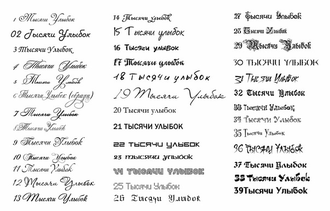 1 Тысячи Улыбок
02 Тысячи Улыбок
3 Тысячи Улыбок
4 Тысячи Улыбок
5 Тысячи Улыбок
6 Тысячи Улыбок
7 Тысячи Улыбок
8 Тысячи Улыбок
9 Тысячи Улыбок
10 Тысячи Улыбок
11 Тысячи Улыбок
12 Тысячи Улыбок
13 Тысячи Улыбок
14 Тысячи Улыбок
15 Тысячи улыбок
16 Тысячи улыбок
17 Тысячи Улыбок
18 Тысячи улыбок
19 Тысячи Улыбок
20 Тысячи улыбок
21 ТЫСЯЧИ УЛЫБОК
22 Тысячи улыбок
23 тысячи улыбок
24 Тысячи улыбок
25 Тысячи Улыбок
26 Тысячи Улыбок
27 Тысячи Улыбок
28 Тысячи Улыбок
29 Тысячи Улыбок
30 ТЫСЯЧИ УЛЫБОК
31 Тысячи Улыбок
32 Тысячи Улыбок
33 Тысячи Улыбок
34 Тысячи Улыбок
35 Тысячи Улыбок
36 Тысячи Улыбок
37 Тысячи Улыбок
38 Тысячи Улыбок
39 Тысячи Улыбок